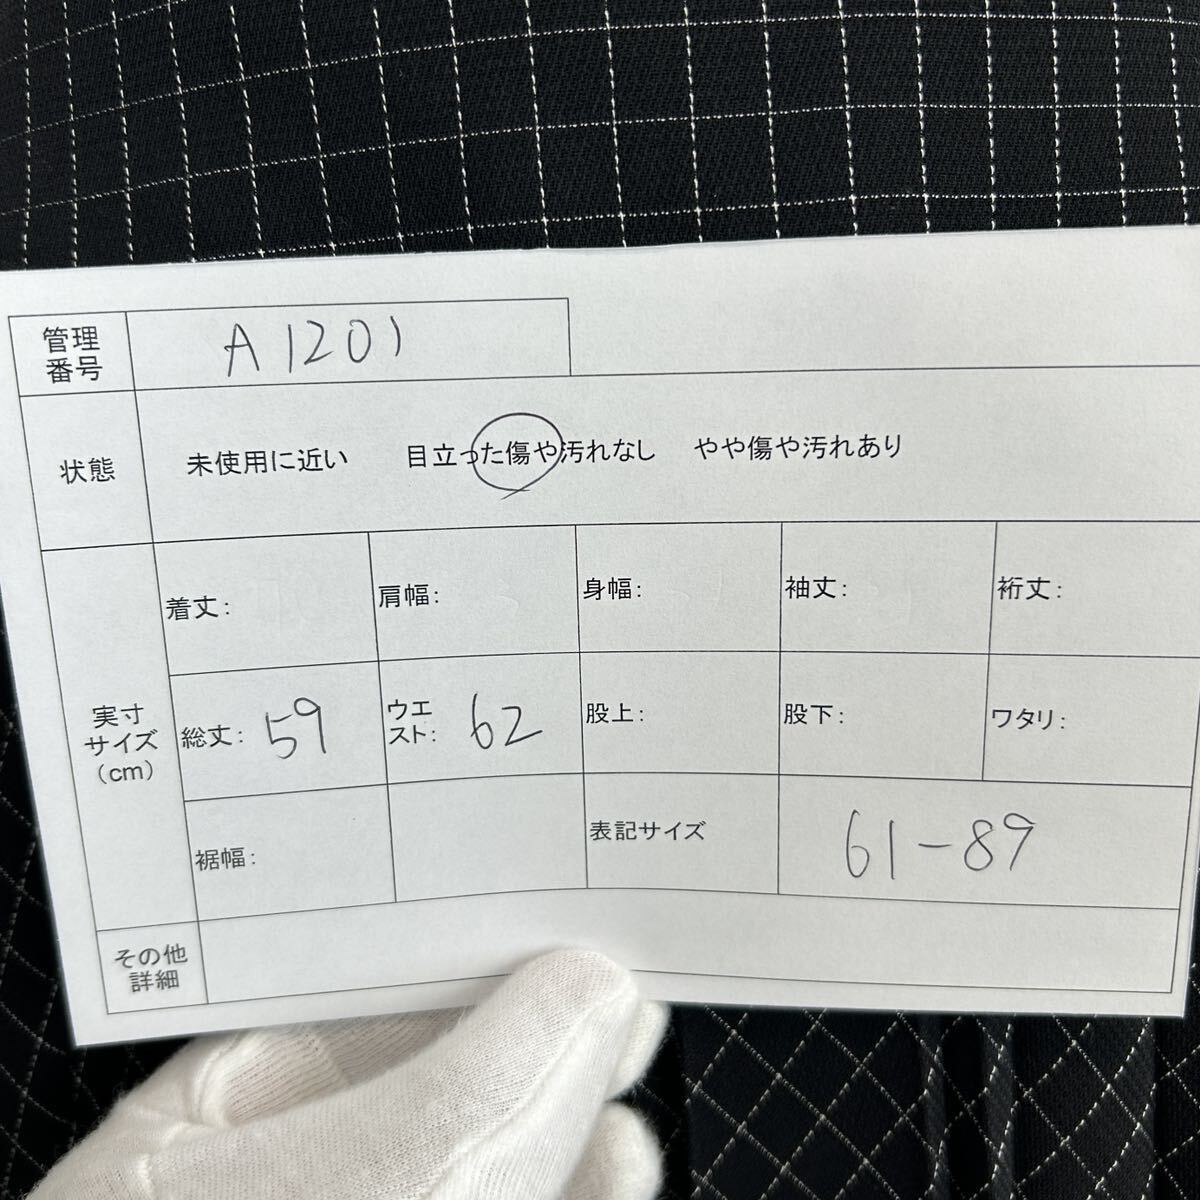 管理
番号
A1201
状態
未使用に近い 目立った傷や汚れなし やや傷や汚れあり
実寸
サイズ
(cm)
着丈:
肩幅:
身幅:
袖丈:
裄丈:
総丈: 59
ウエ
スト: 62
股上:
股下:
ワタリ:
裾幅:
表記サイズ
61-89
その他
詳細